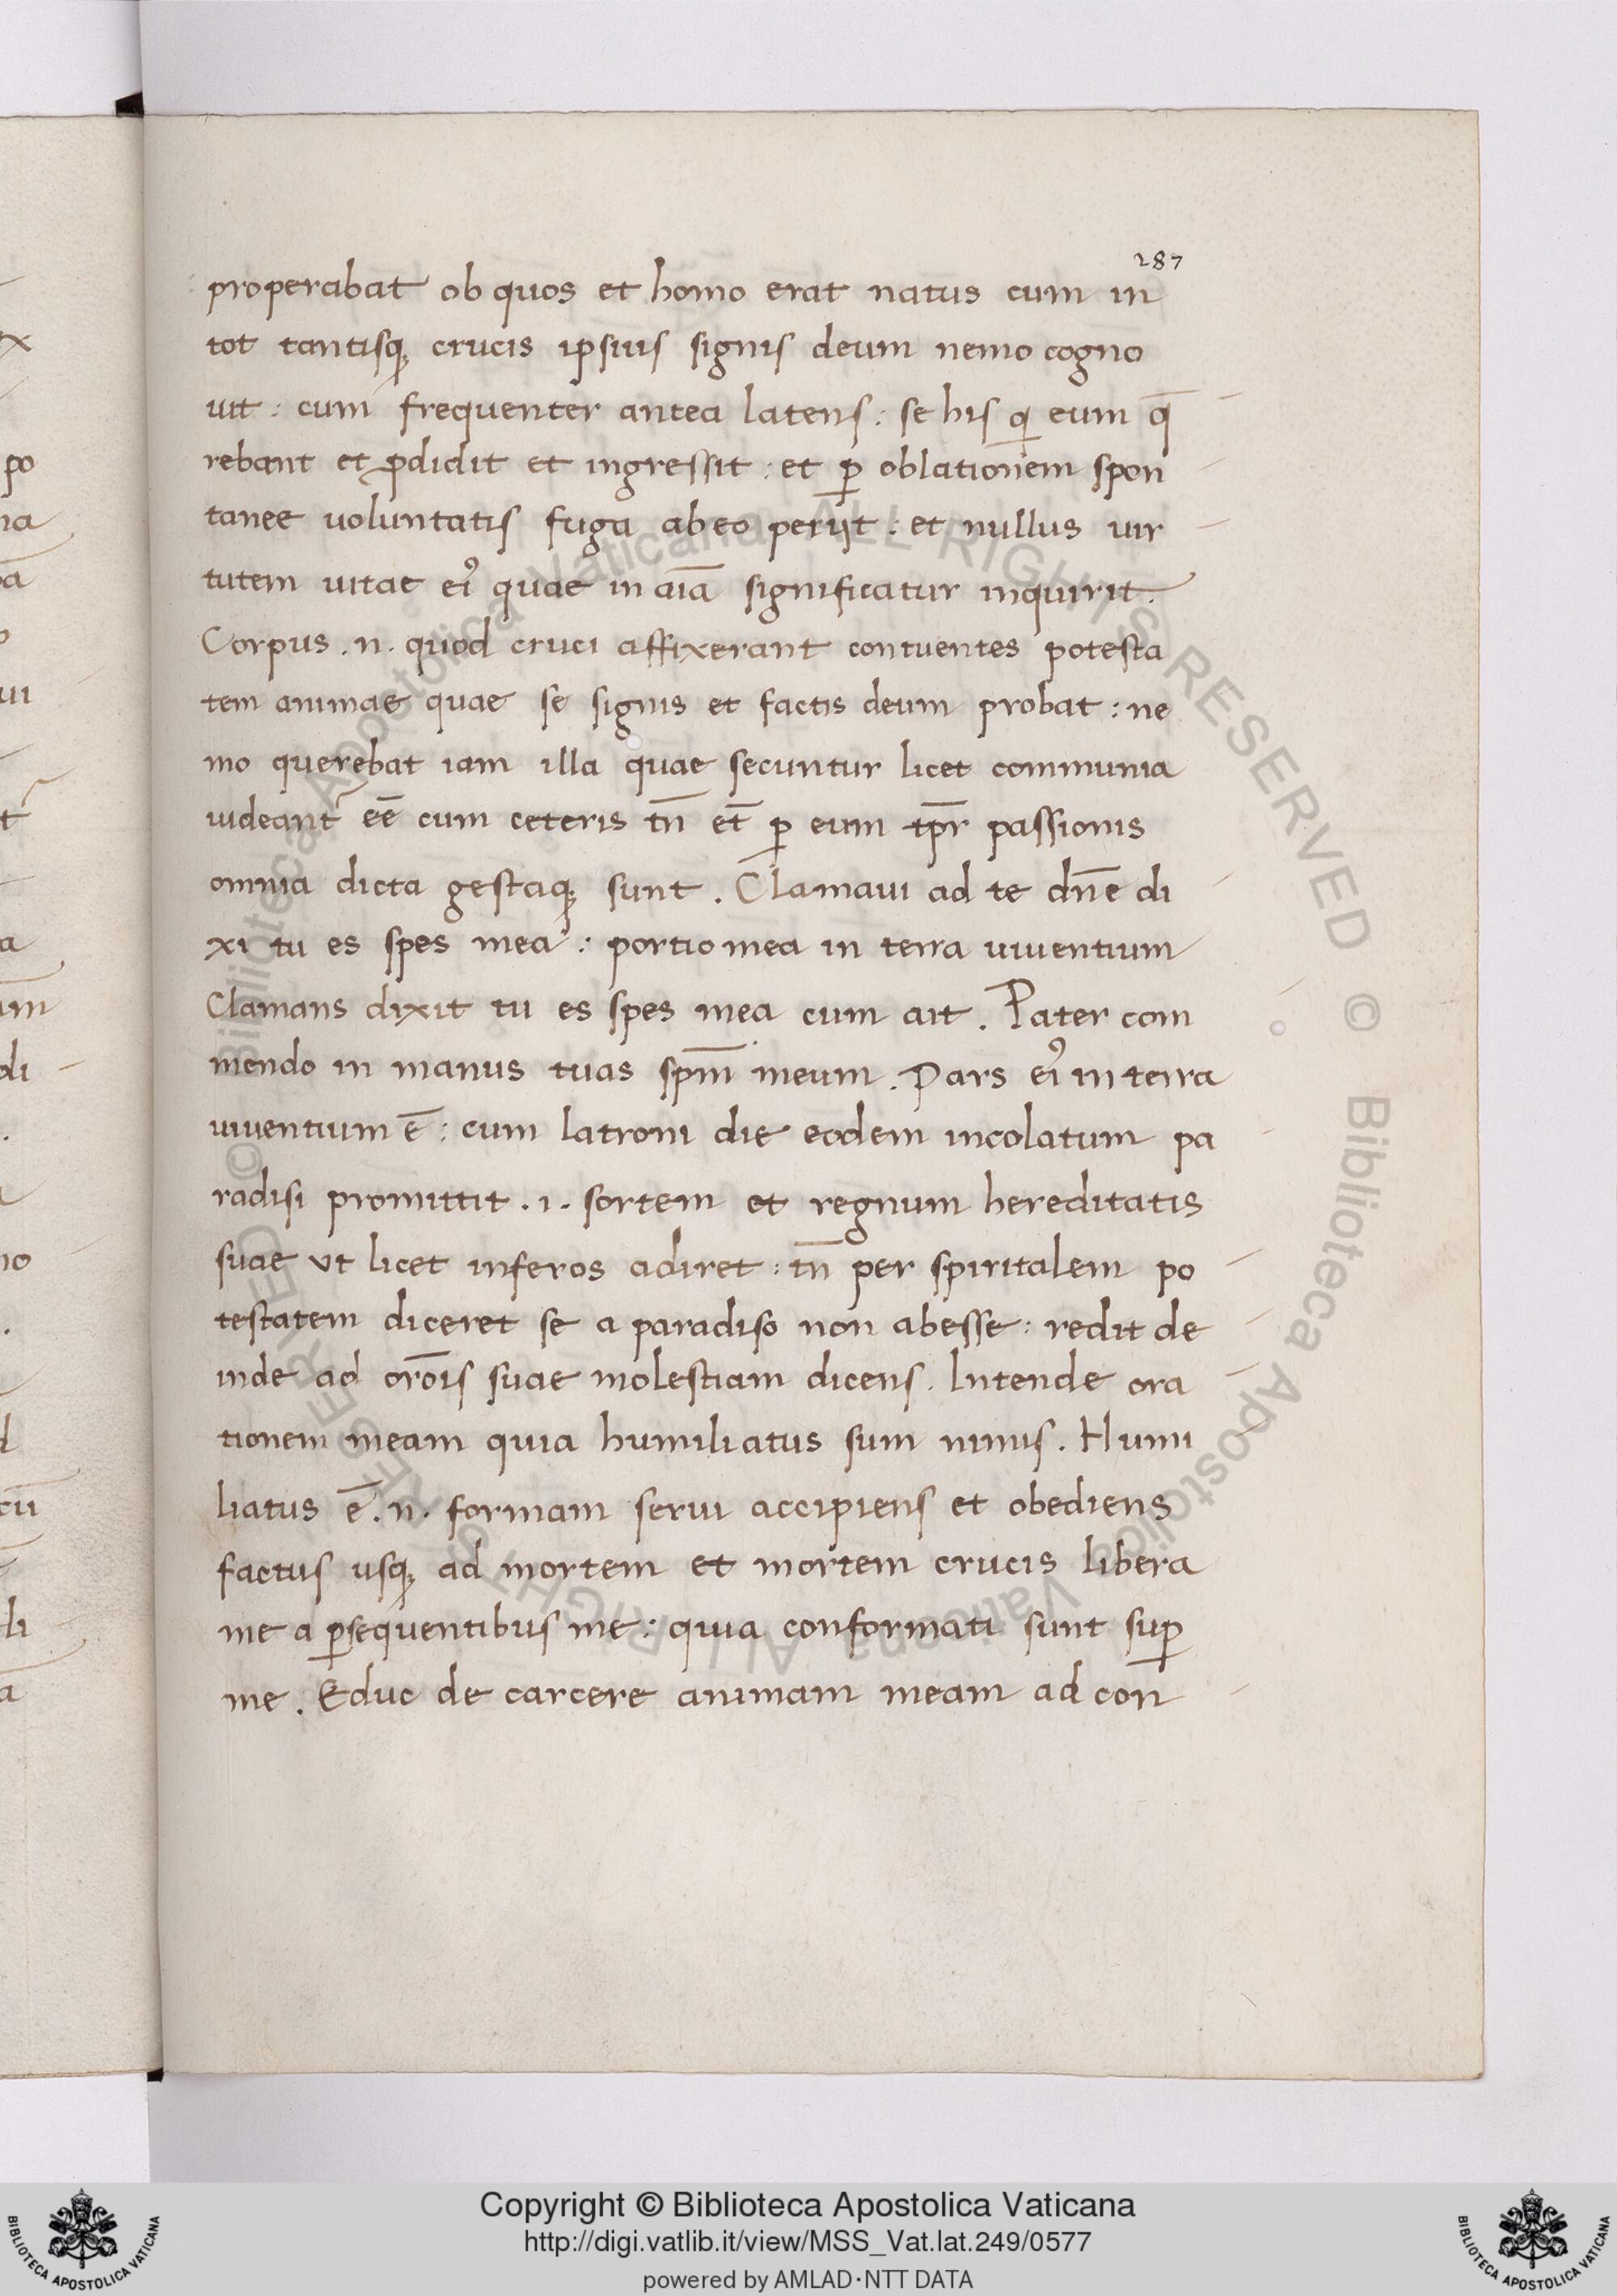 287
properabat ob quos et homo erat natus cum in
tot tantisq; crucis ipsius signis deum nemo cogno
uit : cum frequenter antea latens : se his qi eum q̄
rebant et ꝓdidit et ingressit : et ꝑ oblationem spon
tanee uoluntatis fuga ab eo periit : et nullus uir
tutem uitae eiꝰ quae in aīa significatur inquirit.
Corpus .n. quod cruci affixerant contuentes potesta
tem animae quae se signis et factis deum probat : ne
mo querebat iam illa quae secuntur licet communia
uideant᷑ eē cum ceteris tn̄ et̄ ꝑ eum tp̄r passionis
omnia dicta gestaq; sunt . Clamaui ad te dn̄e di
xi tu es spes mea : portio mea in terra uiuentium
Clamans dixit tu es spes mea cum ait . Pater com
mendo in manus tuas sp̄m meum . Pars eiꝰ in terra
uiuentium ē : cum latroni die eodem incolatum pa
radisi promittit .i. sortem et regnum hereditatis
suae ut licet inferos adiret : tn̄ per spiritalem po
testatem diceret se a paradiso non abesse : redit de
inde ad orōis suae molestiam dicens . Intende ora
tionem meam quia humiliatus sum nimis . Humi
liatus ē .n. formam serui accipiens et obediens
factus usq; ad mortem et mortem crucis libera
me a ꝑsequentibus me : quia conformati sunt suꝑ
me . Educ de carcere animam meam ad con
po
na
ui
di
no
cū
li
© Biblioteca Apostolica Vaticana ALL RIGHTS RESERVED © Biblioteca Apostolica Vaticana ALL RIGHTS RESERVED
Copyright © Biblioteca Apostolica Vaticana
http://digi.vatlib.it/view/MSS_Vat.lat.249/0577
powered by AMLAD·NTT DATA
BIBLIOTECA APOSTOLICA VATICANA
BIBLIOTECA APOSTOLICA VATICANA